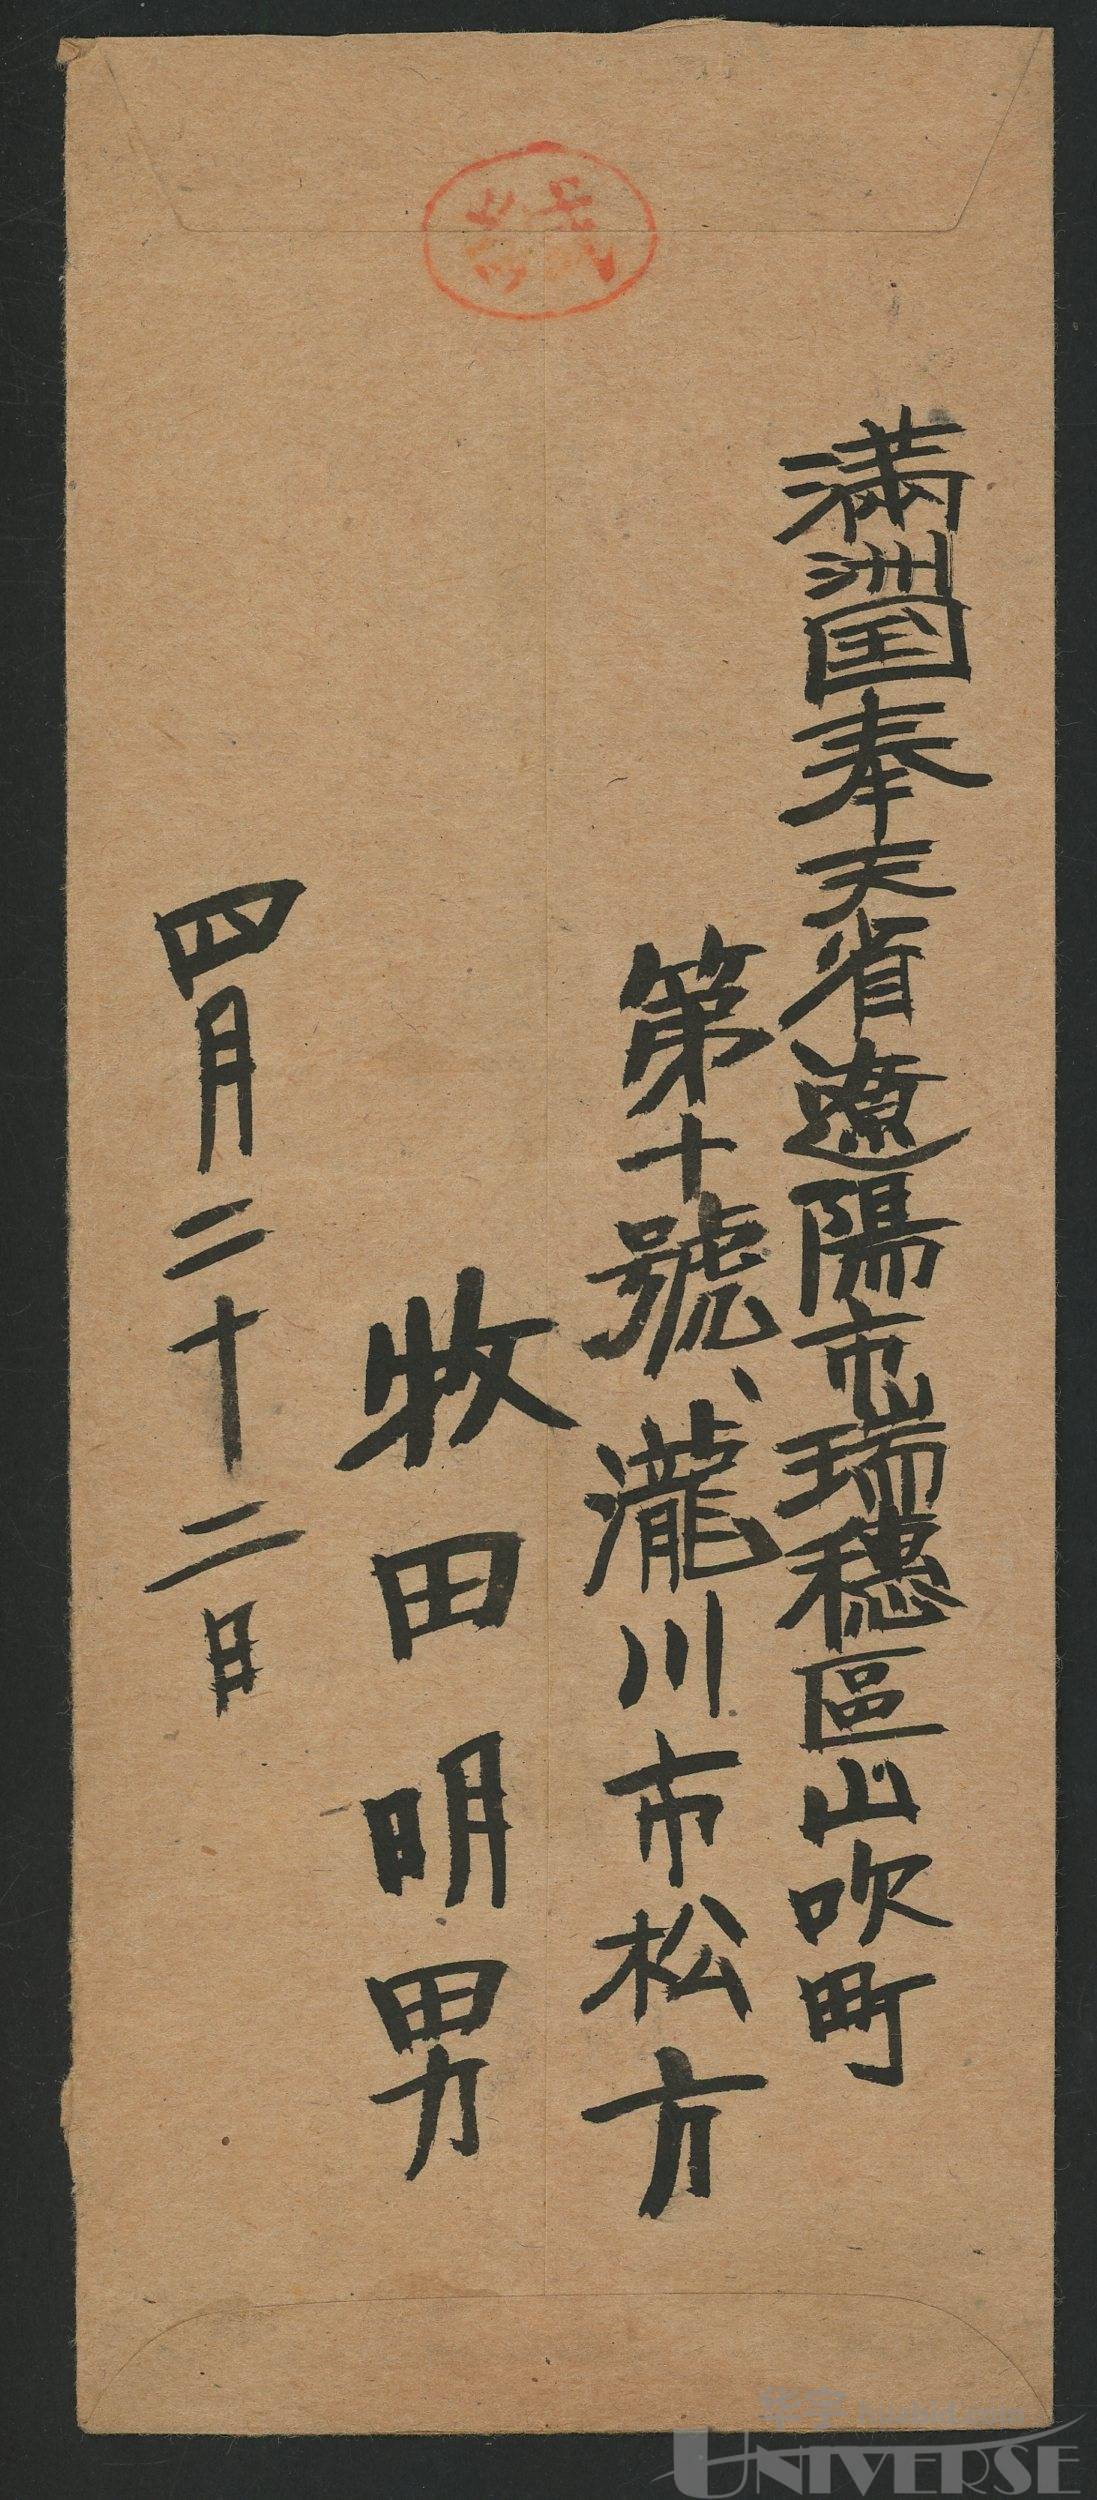 緘
満洲国奉天省遼陽市瑞穂區山吹町
第十號、瀧川市松方
牧田明男
四月二十二日
华宇 huabid.com
UNIVERSE